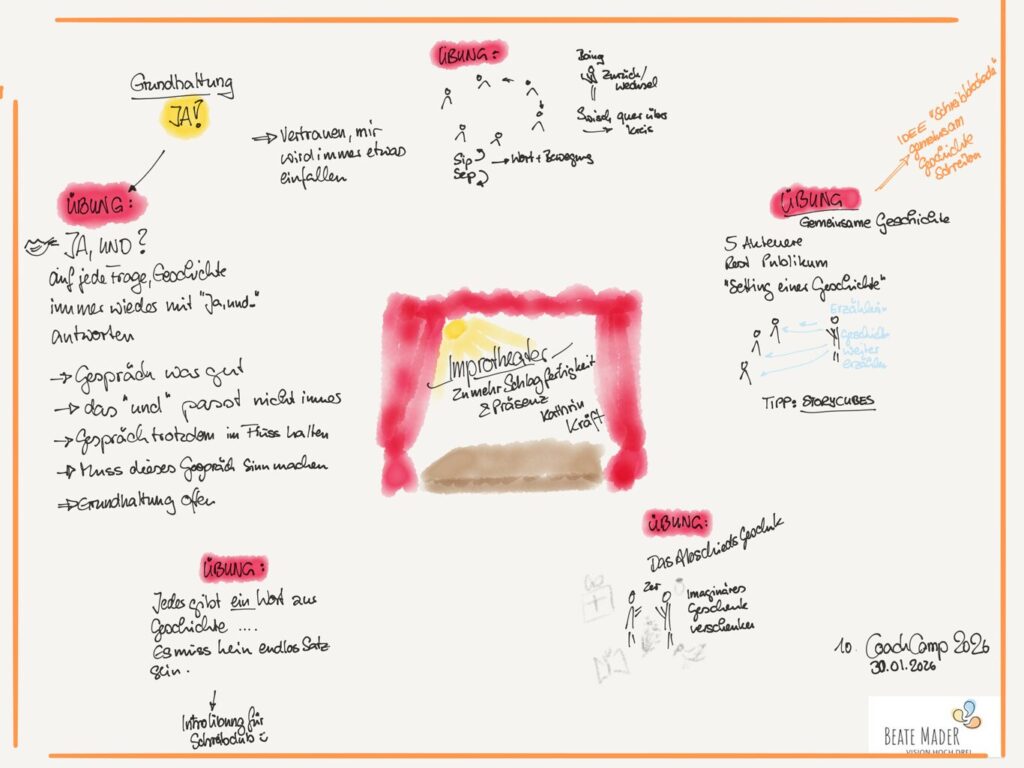 Grundhaltung
JA!
⇒ Vertrauen, mir
wird immer etwas
einfallen
ÜBUNG:
JA, UND?
auf jede Frage, Geschichte
immer wieder mit "Ja, und..."
antworten
→ Gespräch war gut
→ das "und" passt nicht immer
→ Gespräch trotzdem im Fluss halten
→ Muss dieses Gespräch Sinn machen
⇒ Grundhaltung offen
ÜBUNG:
Sip
Sep
→ Wort + Bewegung
Boing
Zurück/
wechsel
Swisch quer über
→ Kreis
IDEE "Schreibblockade"
gemeinsam
Geschichte
Schreiben
ÜBUNG
Gemeinsame Geschichte
5 Akteuere
Rest Publikum
"Setting einer Geschichte"
Geschichte
weiter
erzählen
TIPP: STORYCUBES
Improtheater
Zu mehr Schlagfertigkeit
& Präsenz
Kathrin
Kraft
ÜBUNG:
Jedes gibt ein Wort aus
Geschichte ....
Es muss kein endlos Satz
sein.
Introübung für
Schreibclub
ÜBUNG:
Das Abschieds Geschenk
2er
Imaginäres
Geschenk
verschenken
10. CoachCamp 2026
30.01.2026
BEATE MADER
VISION HOCH DREI